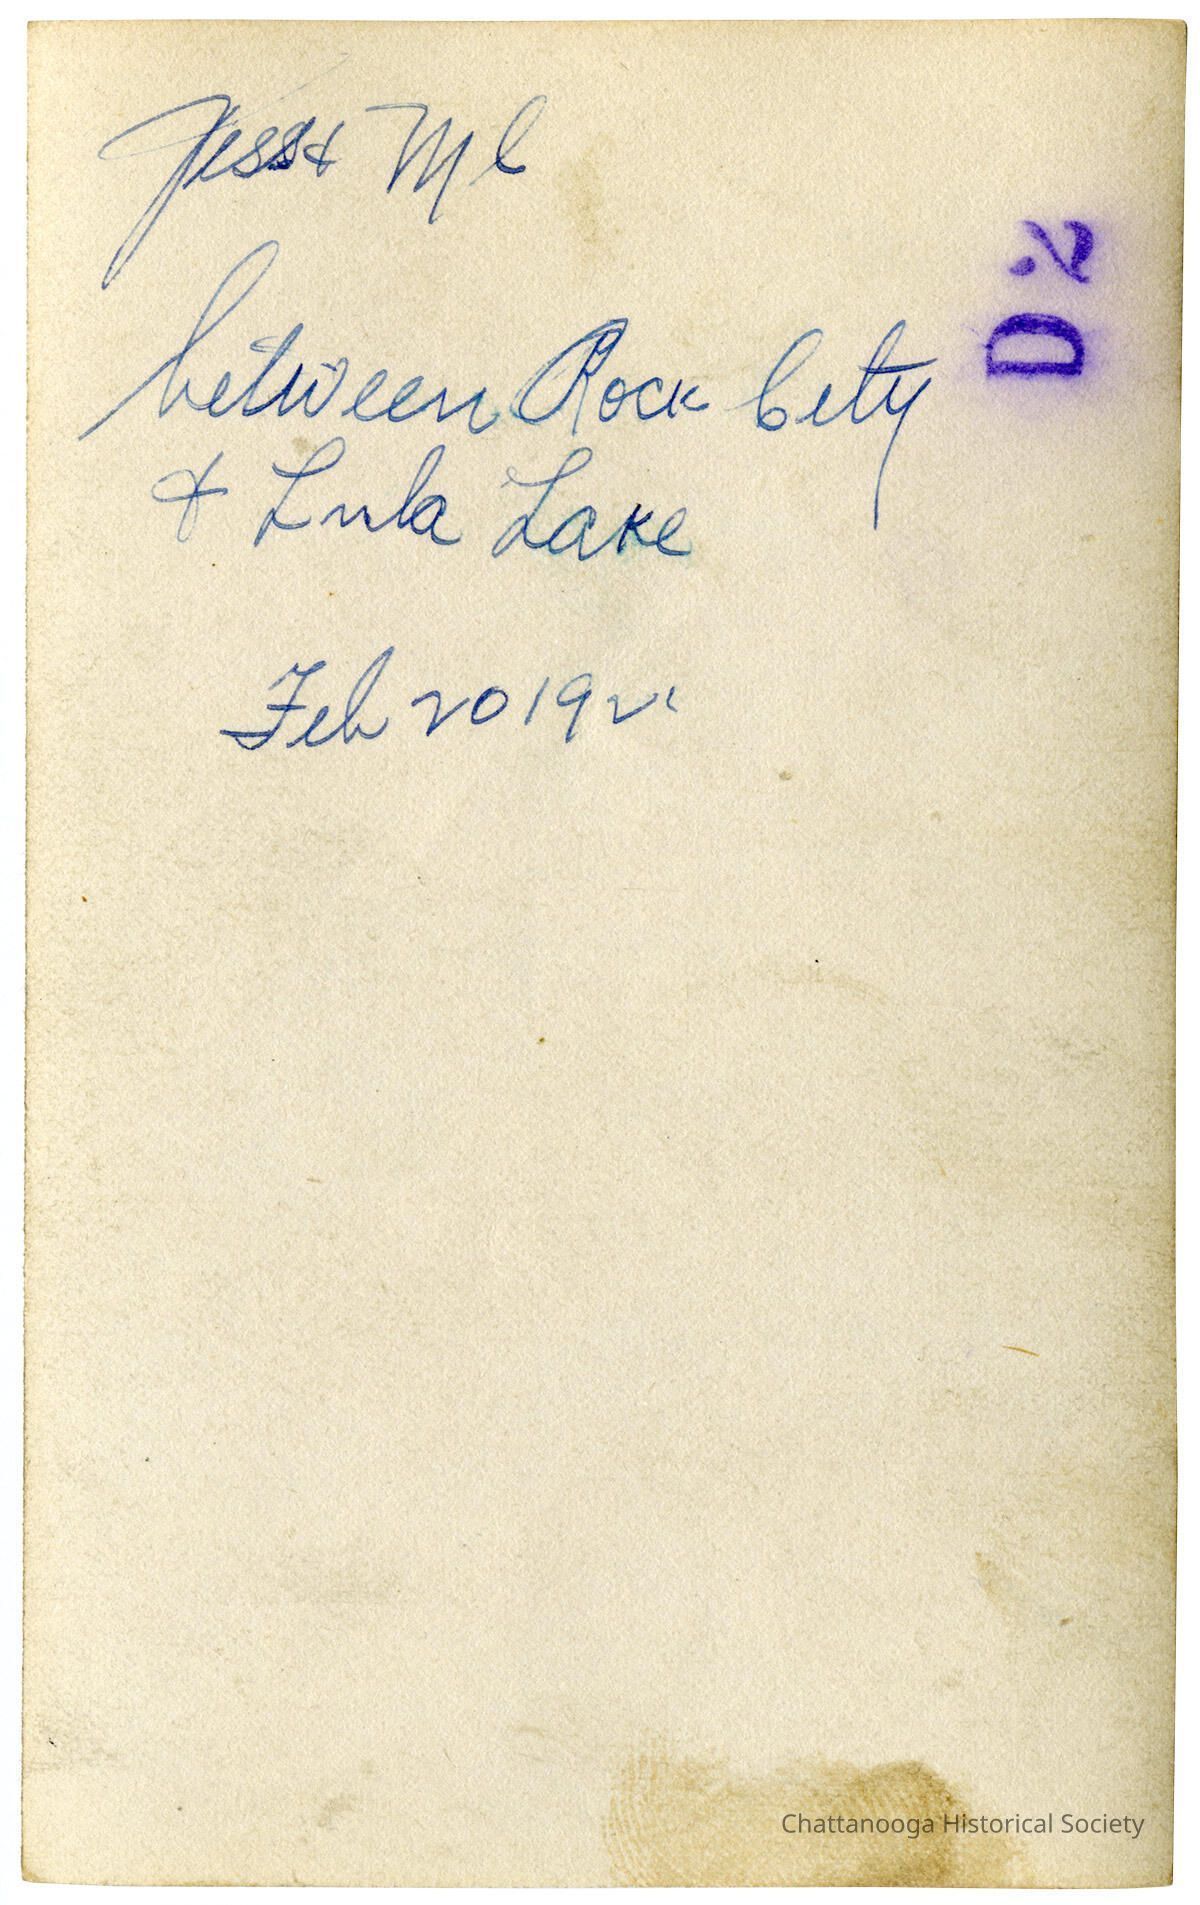 Jess & Me
between Rock City
& Lula Lake
Feb 20 192
D 2
Chattanooga Historical Society